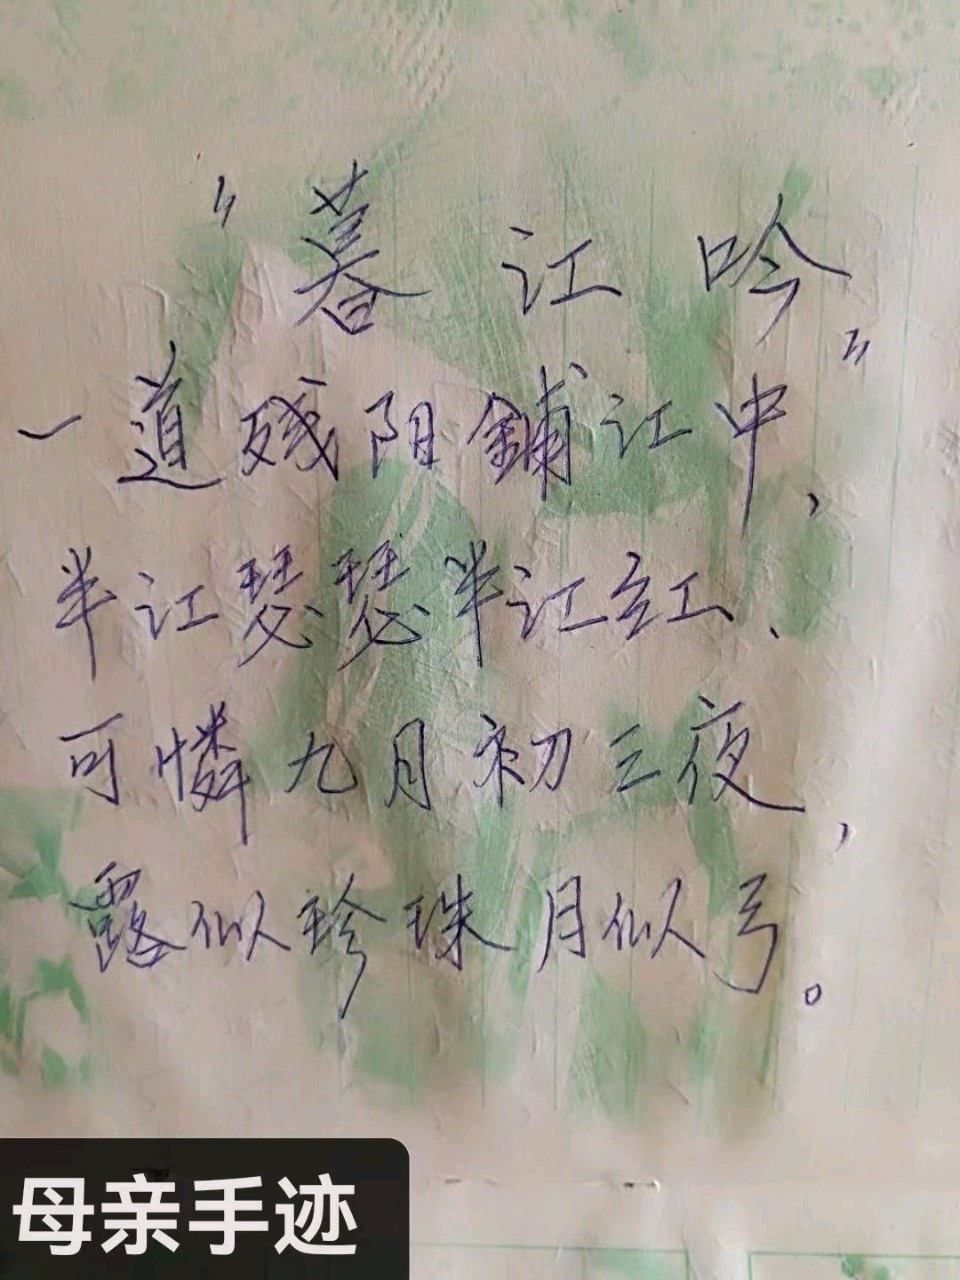 "暮江吟"
一道残阳鋪江中,
半江瑟瑟半江红、
可憐九月初三夜,
露似珍珠月似弓。
母亲手迹